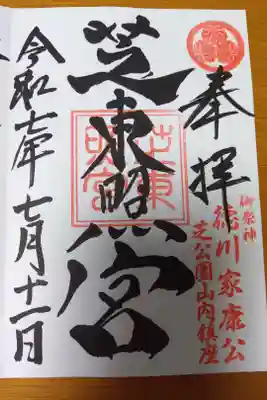 奉拝
御祭神
徳川家康公
芝公園山内鎮座
芝東照宮
芝東照宮
令和七年七月十一日